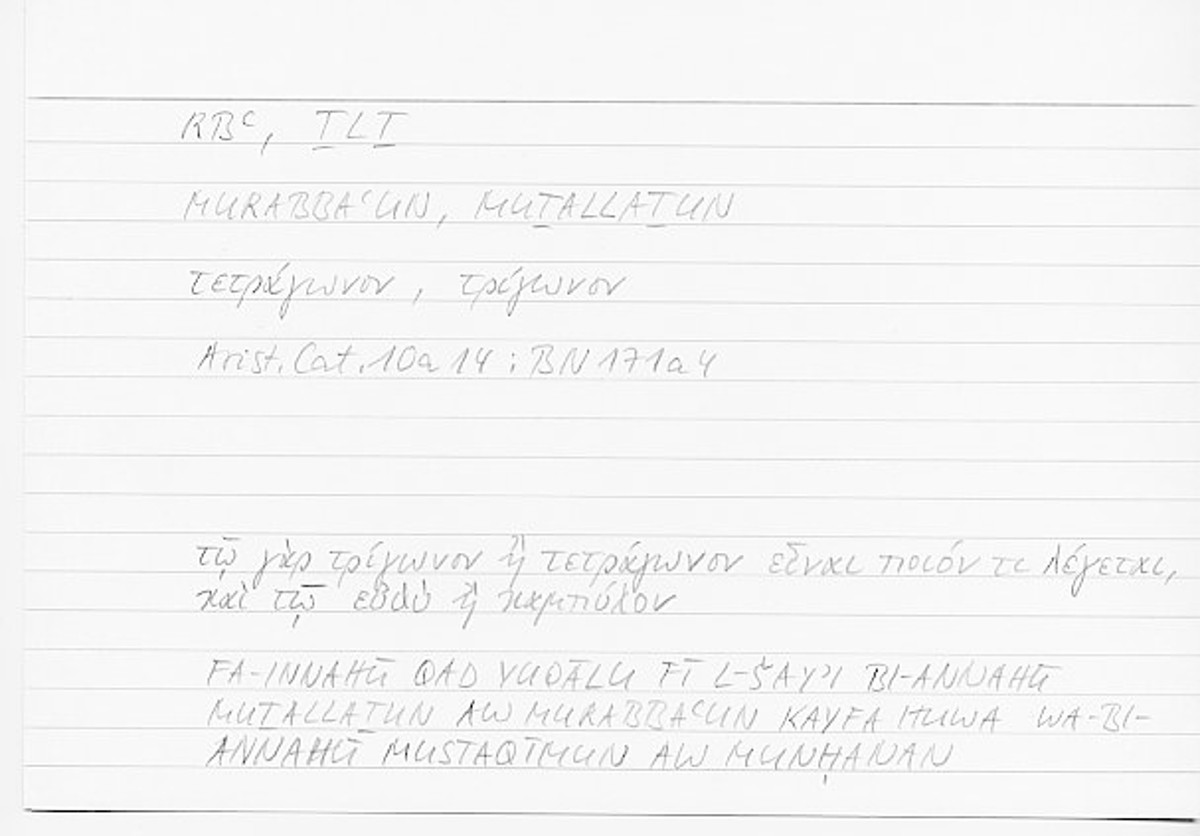 RBʿ, ṮLṮ
MURABBAʿUN, MUṮALLAṮUN
τετράγωνον, τρίγωνον
Arist. Cat. 10a 14 ; BN 171a4
τῷ γὰρ τρίγωνον ἢ τετράγωνον εἶναι ποιόν τι λέγεται,
καὶ τῷ εὐθὺ ἢ καμπύλον
FA-INNAHŪ QAD YUQĀLU FĪ L-ŠAYʾI BI-ANNAHŪ
MUṮALLAṮUN AW MURABBAʿUN KAYFA HUWA WA-BI-
ANNAHŪ MUSTAQĪMUN AW MUNḤANAN